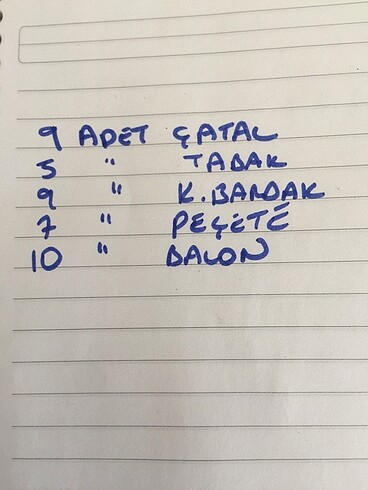 9 ADET ÇATAL
5 " TABAK
9 " K.BARDAK
7 " PEÇETE
10 " BALON